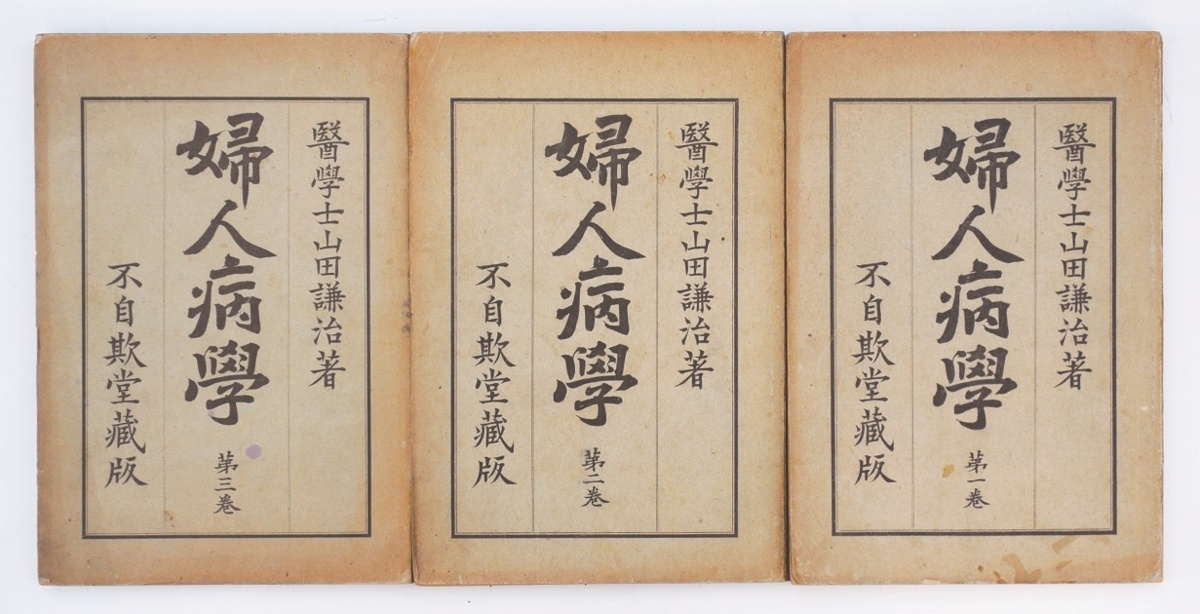 醫學士山田謙治著
婦人病學 第一卷
不自欺堂藏版
醫學士山田謙治著
婦人病學 第二卷
不自欺堂藏版
醫學士山田謙治著
婦人病學 第三卷
不自欺堂藏版